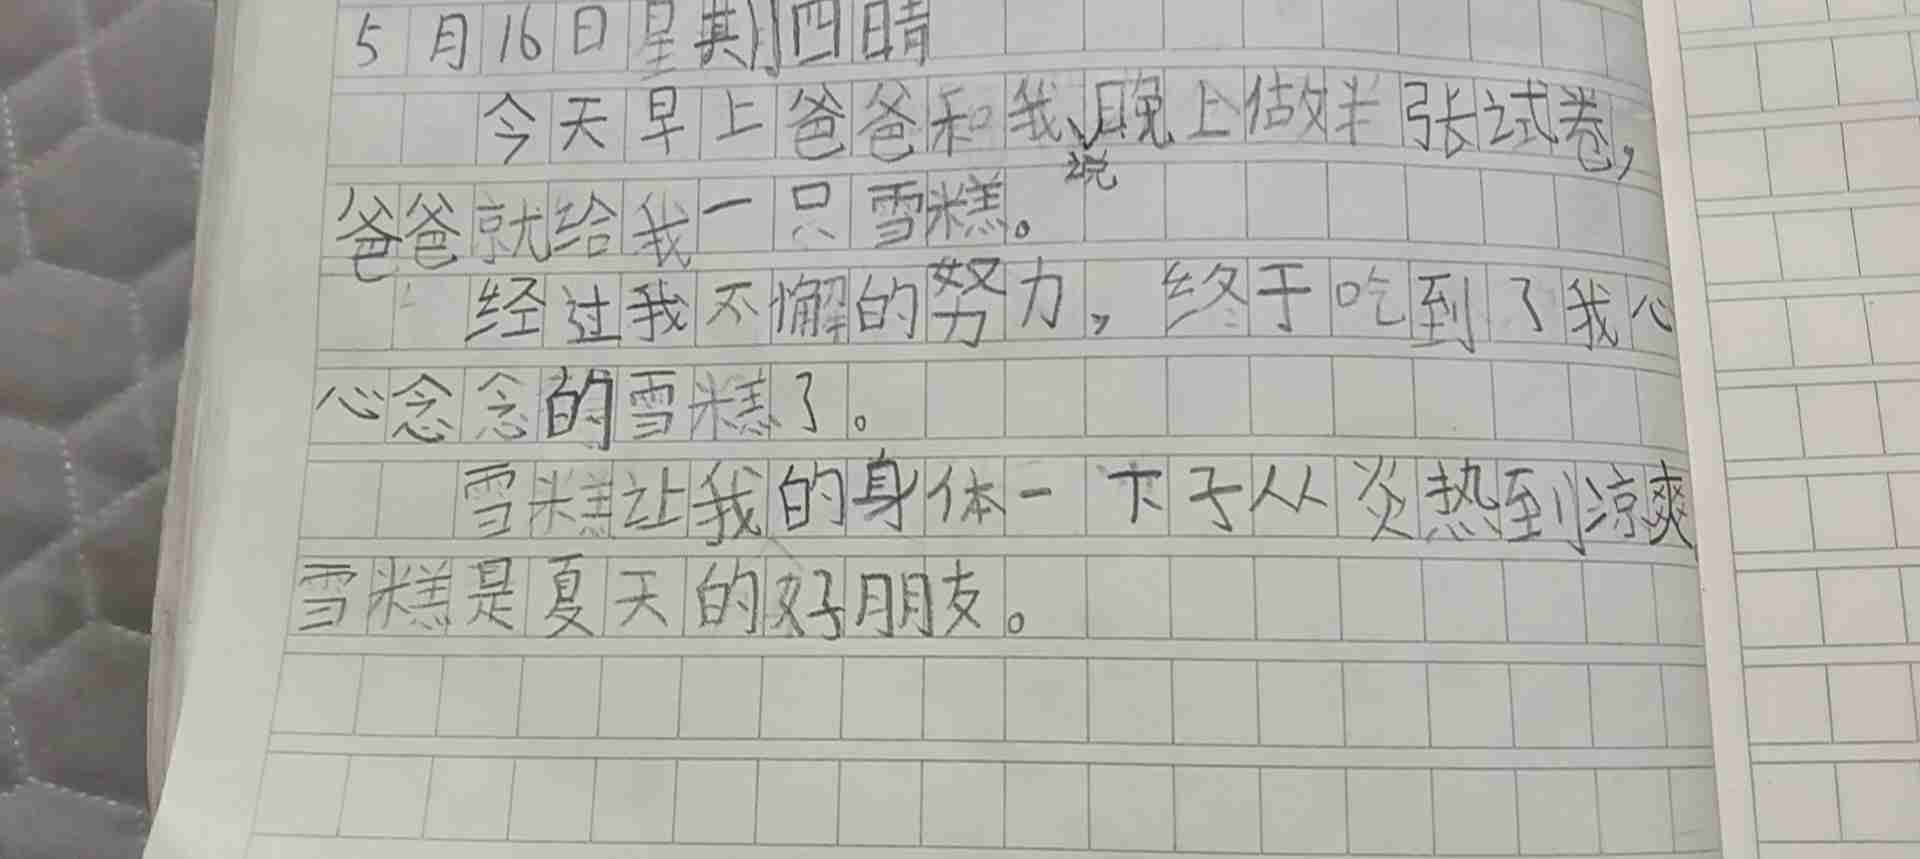 5月16日星期四晴
今天早上爸爸和我说晚上做半张试卷,
爸爸就给我一只雪糕。
经过我不懈的努力,终于吃到了我心
心念念的雪糕了。
雪糕让我的身体一下子从炎热到凉爽
雪糕是夏天的好朋友。